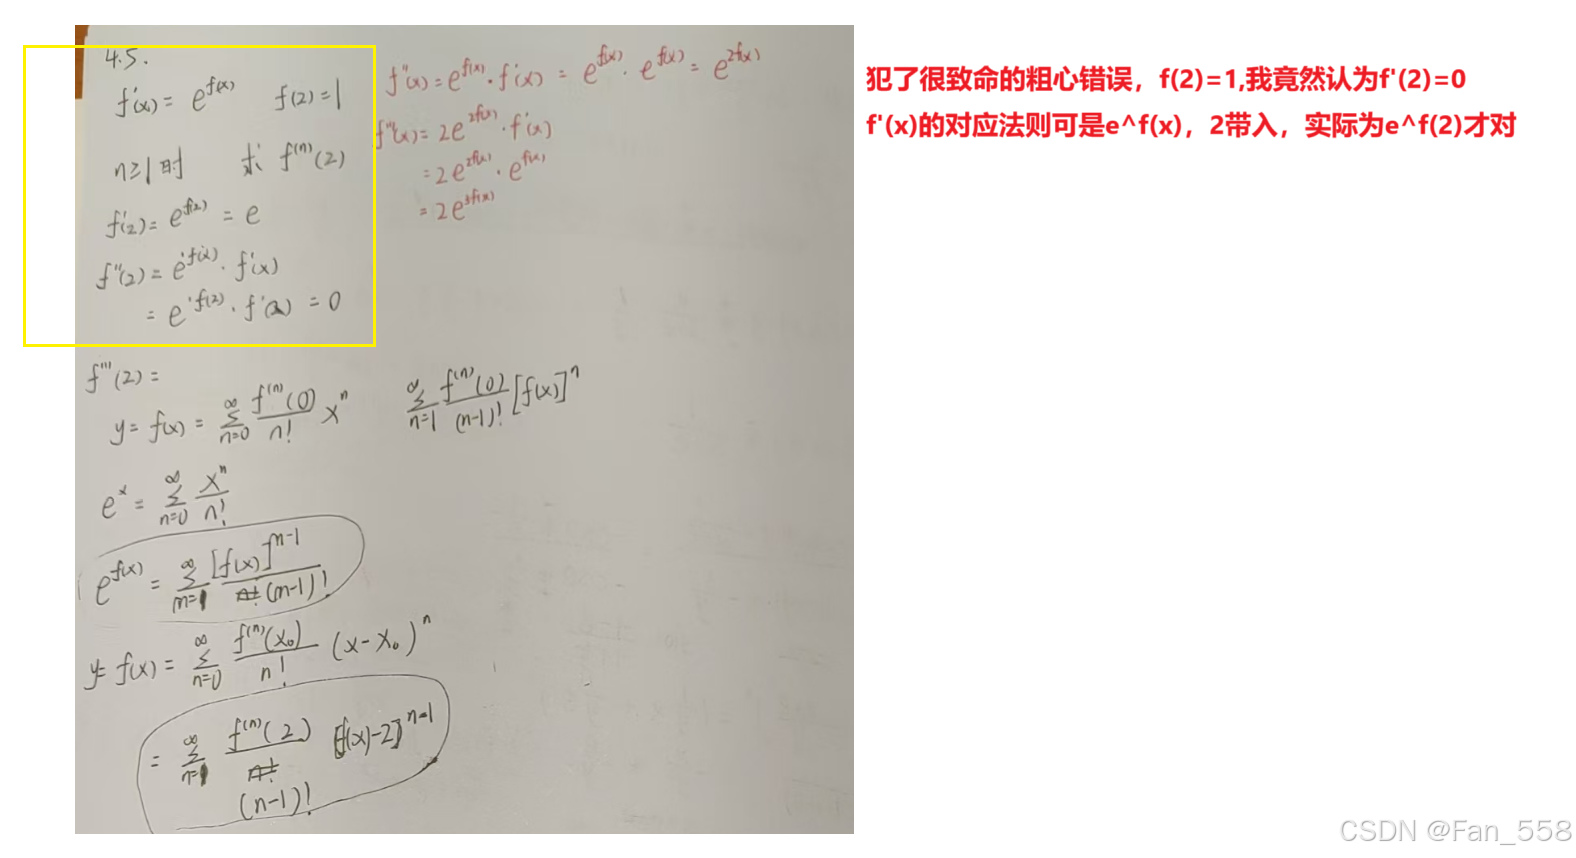 4.5.
f'(x) = e^{f(x)}  f(2)=1
n≥1时  求 f^{(n)}(2)
f'(2) = e^{f(2)} = e
f''(2) = e^{f(x)} · f'(x)
= e^{f(2)} · f'(2) = 0
f''(x) = e^{f(x)} · f'(x) = e^{f(x)} · e^{f(x)} = e^{2f(x)}
f'''(x) = 2e^{2f(x)} · f'(x)
= 2e^{2f(x)} · e^{f(x)}
= 2e^{3f(x)}
犯了很致命的粗心错误，f(2)=1,我竟然认为f'(2)=0
f'(x)的对应法则可是e^f(x)，2带入，实际为e^f(2)才对
f'''(2) =
y = f(x) = \sum_{n=0}^{∞} \frac{f^{(n)}(0)}{n!} x^n  \sum_{n=1}^{∞} \frac{f^{(n)}(0)}{(n-1)!} [f(x)]^n
e^x = \sum_{n=0}^{∞} \frac{x^n}{n!}
e^{f(x)} = \sum_{n=1}^{∞} \frac{[f(x)]^{n-1}}{(n-1)!}
y = f(x) = \sum_{n=0}^{∞} \frac{f^{(n)}(x_0)}{n!} (x-x_0)^n
= \sum_{n=1}^{∞} \frac{f^{(n)}(2)}{(n-1)!} [f(x)-2]^{n-1}
CSDN @Fan_558